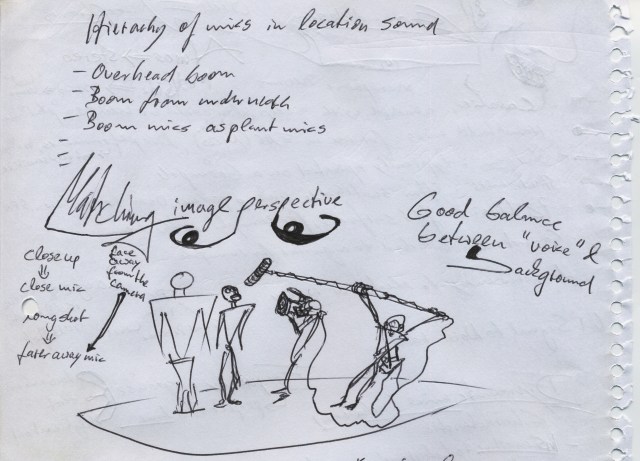 Hierachy of mics in location sound
- Overhead boom
- Boom from underneath
- Boom mics as plant mics
-
-
-
Matching image perspective
Good balance
between "voice" &
background
close up
⇓
close mic
long shot
⇓
farer away mic
face
away
from the
camera